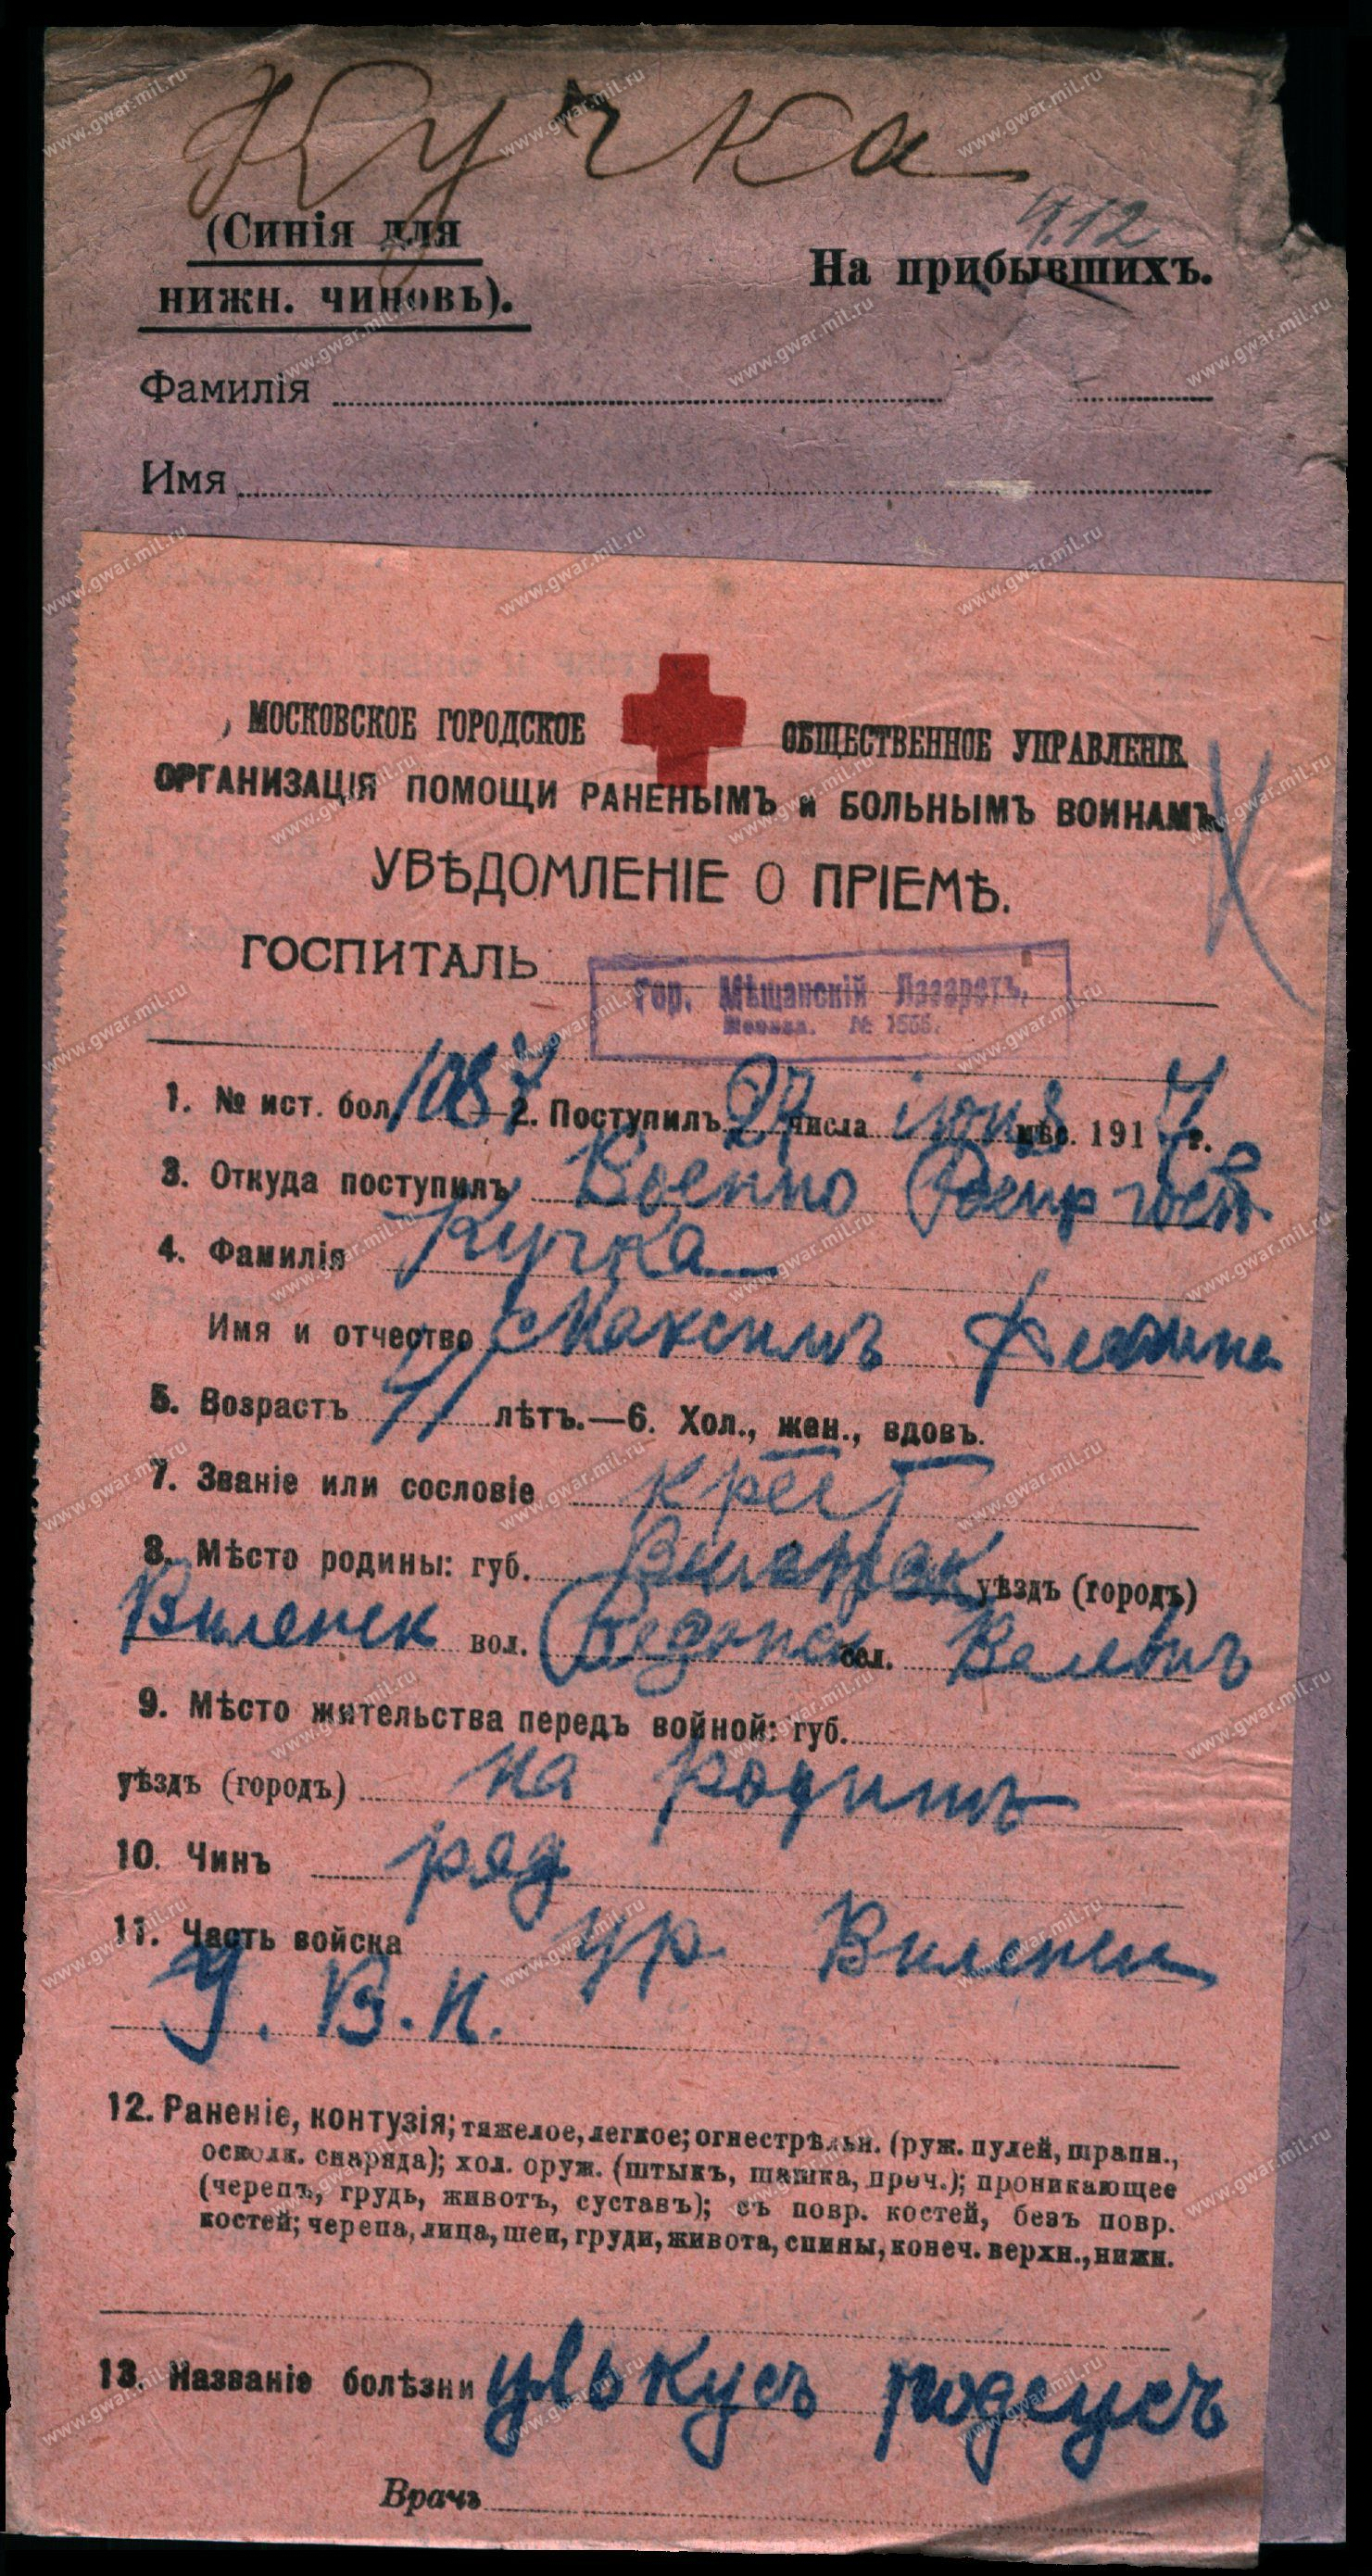 Кучка
4.12
(Синія для
нижн. чиновъ).
На прибывшихъ.
Фамилія
Имя
МОСКОВСКОЕ ГОРОДСКОЕ ОБЩЕСТВЕННОЕ УПРАВЛЕНІЕ
ОРГАНИЗАЦІЯ ПОМОЩИ РАНЕНЫМЪ и БОЛЬНЫМЪ ВОИНАМЪ
УВѢДОМЛЕНІЕ О ПРІЕМѢ.
ГОСПИТАЛЬ Гор. Мѣщанскій Лазаретъ,
Москва. №
1. № ист. бол. 1087 —2. Поступилъ 27 числа іюня мѣс. 1917 г.
3. Откуда поступилъ Военно госп
4. Фамилія Кучка
Имя и отчество Максимъ
5. Возрастъ 41 лѣтъ.—6. Хол., жен., вдовъ.
7. Званіе или сословіе крест
8. Мѣсто родины: губ. Виленск уѣздъ (городъ)
Виленск вол. сел.
9. Мѣсто жительства передъ войной: губ.
уѣздъ (городъ) на родинѣ
10. Чинъ ряд
11. Часть войска Виленск
У. В. Н.
12. Раненіе, контузія; тяжелое, легкое; огнестрѣльн. (руж. пулей, шрапн.,
осколк. снаряда); хол. оруж. (штыкъ, шашка, проч.); проникающее
(черепъ, грудь, животъ, суставъ); съ повр. костей, безъ повр.
костей; черепа, лица, шеи, груди, живота, спины, конеч. верхн., нижн.
13. Названіе болѣзни
Врачъ
www.gwar.mil.ru